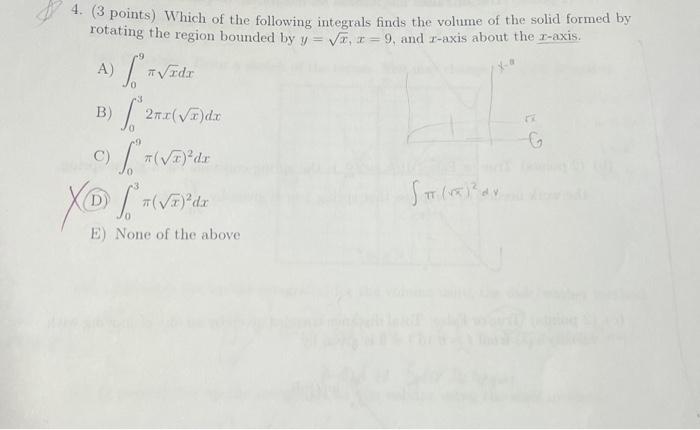 4. (3 points) Which of the following integrals finds the volume of the solid formed by
rotating the region bounded by y = √x, x = 9, and x-axis about the x-axis.
A) ∫₀⁹ π√x dx
B) ∫₀³ 2πx(√x)dx
C) ∫₀⁹ π(√x)²dx
D) ∫₀³ π(√x)²dx
E) None of the above
∫ π (√x)² dx